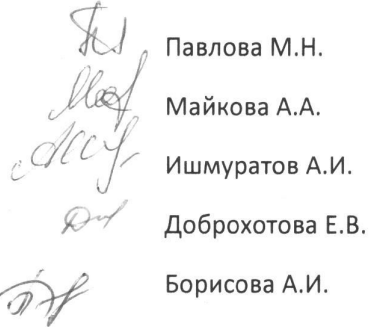 Павлова М.Н.
Майкова А.А.
Ишмуратов А.И.
Доброхотова Е.В.
Борисова А.И.